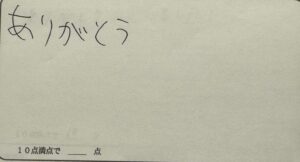 ありがとう
10点満点で ____ 点